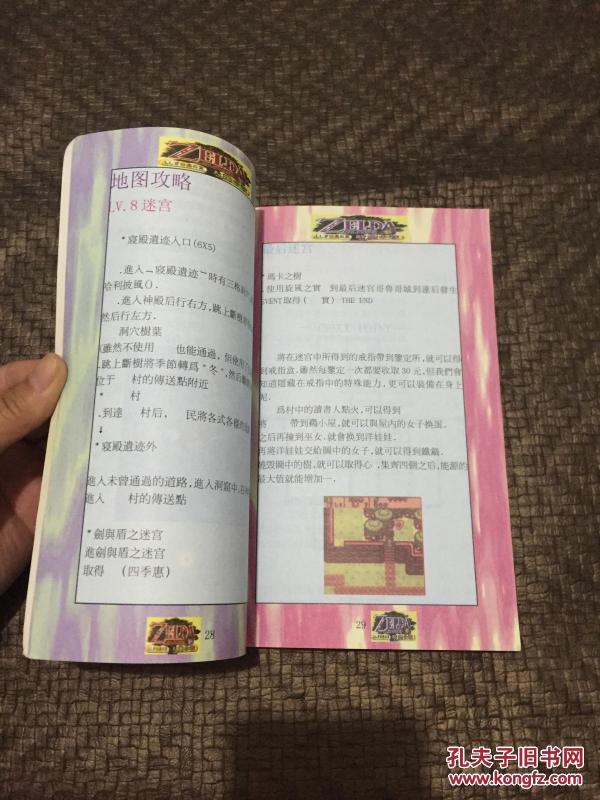 ZELDA
地图攻略
LV.8迷宫
*寝殿遺迹入口(6X5)
.進入“寝殿遺迹”時有三
哈利披風().
.進入神殿后行右方,跳上斷樹
然后行左方.
洞穴樹葉
(雖然不使用 也能通過,但使用了
.跳上斷樹將季節轉爲“冬”,然后
位于 村的傳送點附近
* 村
.到達 村后, 民將各式各樣的
↓
*寝殿遺迹外
進入未曾通過的道路,進入洞窟中,
進入 村的傳送點
*劍與盾之迷宫
進劍與盾之迷宫
取得 (四季惠)
ZELDA
28
ZELDA
最后迷宫
*瑪卡之樹
.使用旋風之實 到最后迷宮哥魯哥城到達后發生
EVENT取得( 實) THE END
將在迷宫中所得到的戒指帶到鑒定所,就可以得
到戒指盒,雖然每鑒定一次都要收取30元,但我們會
知道隱藏在戒指中的特殊能力,更可以裝備在身上
呢.
爲村中的讀書人點火,可以得到
將 帶到鷄小屋,就可以與屋内的女子换蛋.
之后再撞到巫女,就會换到洋娃娃.
再將洋娃娃交給圖中的女子,就可以得到鐵鍋.
燒毁圖中的樹,就可以取得心,集齊四個之后,能源的
最大值就能增加一.
29
ZELDA
孔夫子旧书网
www.kongfz.com